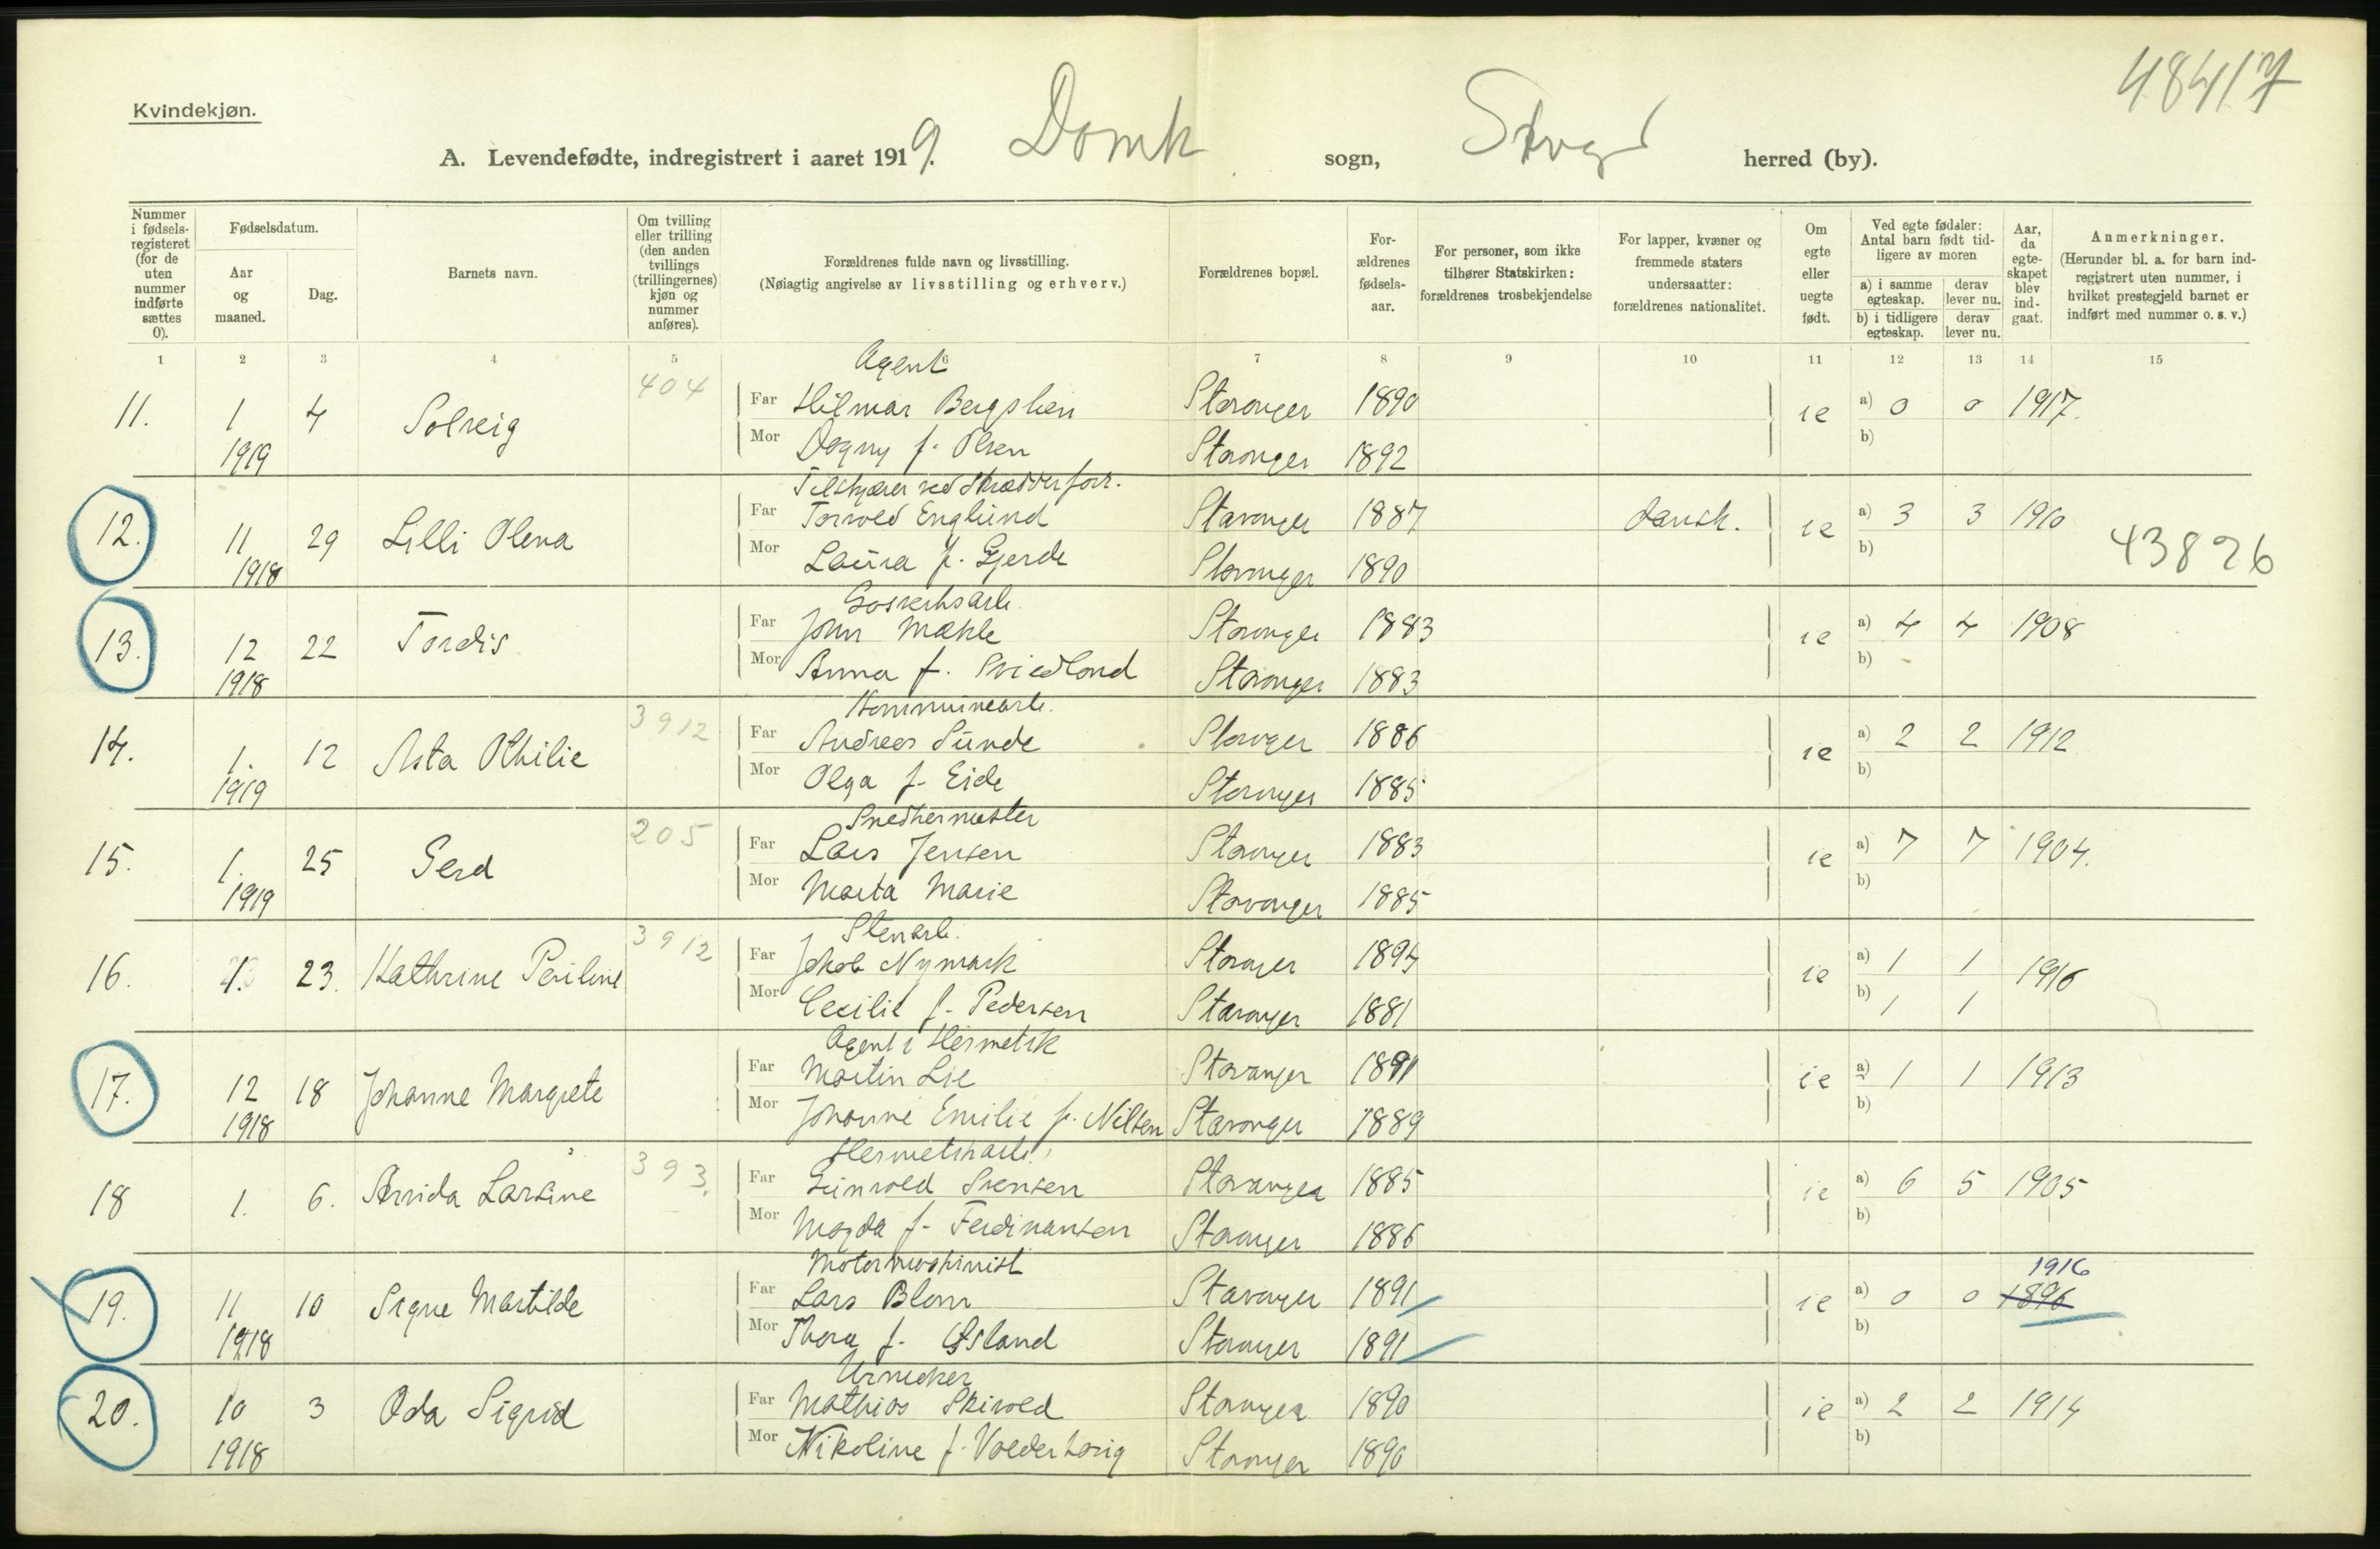 48417
Kvindekjøn.
A. Levendefødte, indregistrert i aaret 1919. Domk sogn, Stvgr herred (by).
Nummer i fødsels-registeret (for de uten nummer indførte sættes 0).
Fødselsdatum.
Aar og maaned.
Dag.
Barnets navn.
Om tvilling eller trilling (den anden tvillings (trillingernes) kjøn og nummer anføres).
Forældrenes fulde navn og livsstilling.
(Nøiagtig angivelse av livsstilling og erhverv.)
Forældrenes bopæl.
For-ældrenes fødsels-aar.
For personer, som ikke tilhører Statskirken: forældrenes trosbekjendelse
For lapper, kvæner og fremmede staters undersaatter: forældrenes nationalitet.
Om egte eller uegte født.
Ved egte fødsler: Antal barn født tid-ligere av moren
a) i samme egteskap.
derav lever nu.
b) i tidligere egteskap.
derav lever nu.
Aar, da egte-skapet blev ind-gaat.
Anmerkninger.
(Herunder bl. a. for barn ind-registrert uten nummer, i hvilket prestegjeld barnet er indført med nummer o. s. v.)
1 2 3 4 5 6 7 8 9 10 11 12 13 14 15
Agent
11. 1 4 Solveig 404 Far Hilmar Bergslien Stavanger 1890 ie a) 0 0 1917.
1919 Mor Dagny f. Olsen Stavanger 1892 b)
Tilskjærer ved skrædderforr.
12. 11 29 Lilli Olena Far Torvald Englund Stavanger 1887 dansk. ie a) 3 3 1910
1918 Mor Laura f. Gjerde Stavanger 1890 b) 43826
Gasverksarb.
13. 12 22 Tordis Far John Mæhle Stavanger 1883 ie a) 4 4 1908
1918 Mor Anna f. Stavanger 1883 b) -
Kommunearb.
14. 1. 12 Asta Othilie 3912 Far Andreas Sunde Stavanger 1886 ie a) 2 2 1912
1919 Mor Olga f. Eide Stavanger 1885 b)
Snedkermester
15. 1. 25 Gerd 205 Far Lars Jensen Stavanger 1883 ie a) 7 7 1904.
1919 Mor Marta Marie Stavanger 1885 b)
Stenarb.
16. 1. 23. Kathrine Perline 3912 Far Jakob Nymark Stavanger 1894 ie a) 1 1 1916
Mor Cecilie f. Pedersen Stavanger 1881 b) 1 1
Agent i Hermetik
17. 12 18 Johanne Margrete Far Martin Lie Stavanger 1891 ie a) 1 1 1913
1918 Mor Johanne Emilie f. Nilsen Stavanger 1889 b)
Hermetikarb.
18 1. 6. Arvida Larsine 393. Far Svensen Stavanger 1885 ie a) 6 5 1905
Mor Magda f. Ferdinansen Stavanger 1886 b)
Motormaskinist
19. 11 10 Signe Martilde Far Lars Blom Stavanger 1891 ie a) 0 0 1896 1916
1918 Mor Thora f. Østland Stavanger 1891 b)
Urmaker
20. 10 3 Oda Sigrid Far Mathias Skivold Stavanger 1890 ie a) 2 2 1914
1918 Mor Nikoline f. Valderhaug Stavanger 1890 b)